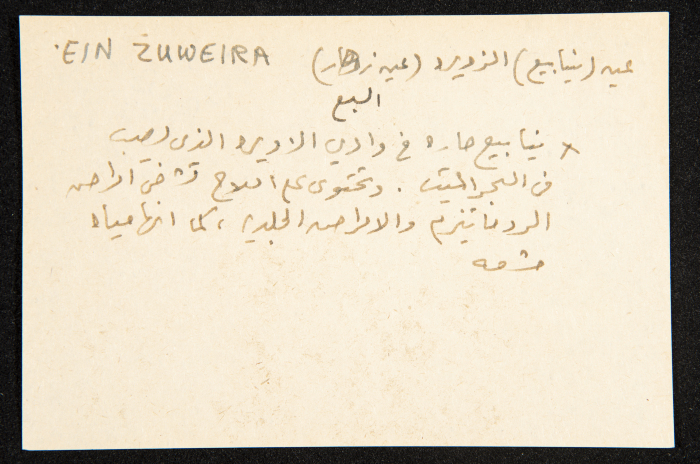 عين (ينابيع) الزويره (عين زهار) 'EIN ZUWEIRA
النبع
* ينابيع حاره في وادي الزويره الذي يصب
في البحر الميت . وتحتوي على املاح تشفي امراض
الروماتيزم والامراض الجلديه ، كما انها مياه
مشعه